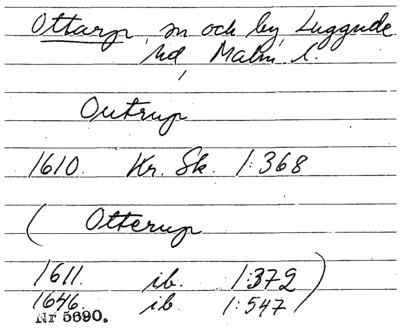 Ottarp, sn och by, Luggude
hd, Malm. l.
Outrup
1610. Kr. Sk. 1:368
( Otterup
1611. ib. 1:372 )
1646. ib 1:547
Nr 5690.